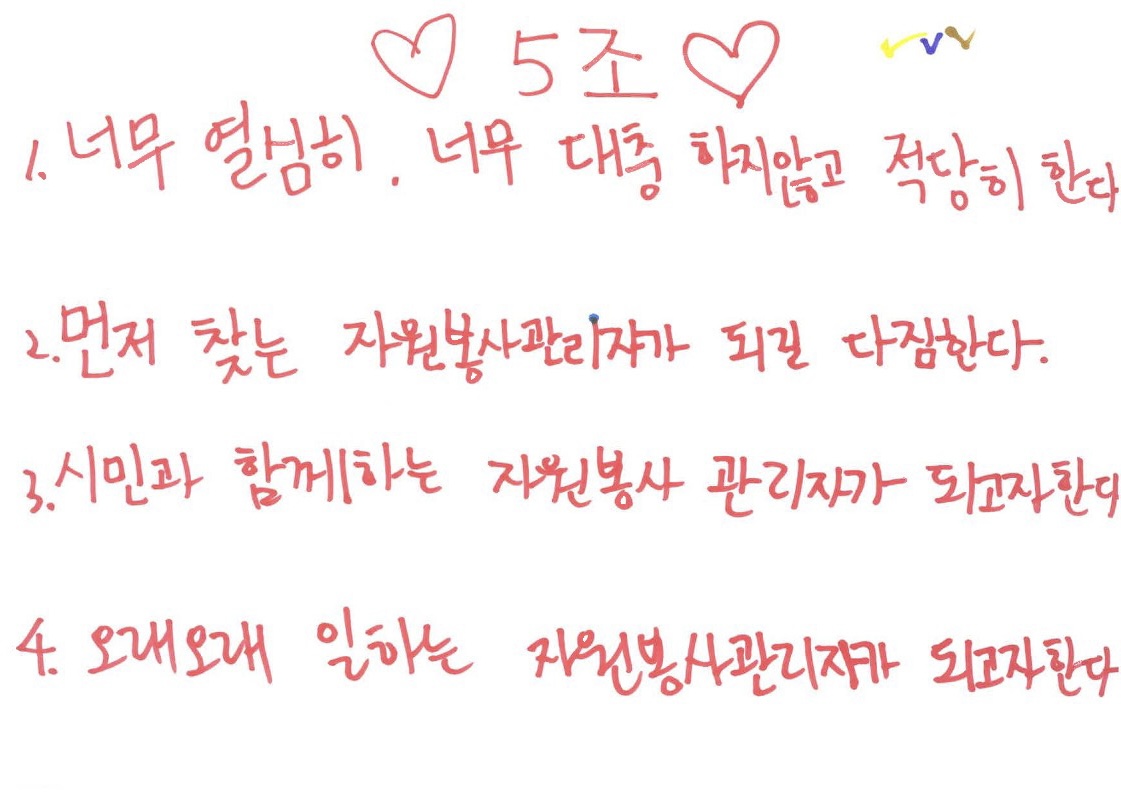 ♡ 5조 ♡
1. 너무 열심히. 너무 대충 하지않고 적당히 한다
2. 먼저 찾는 자원봉사관리자가 되길 다짐한다.
3. 시민과 함께하는 자원봉사 관리자가 되고자한다
4. 오래오래 일하는 자원봉사관리자가 되고자한다